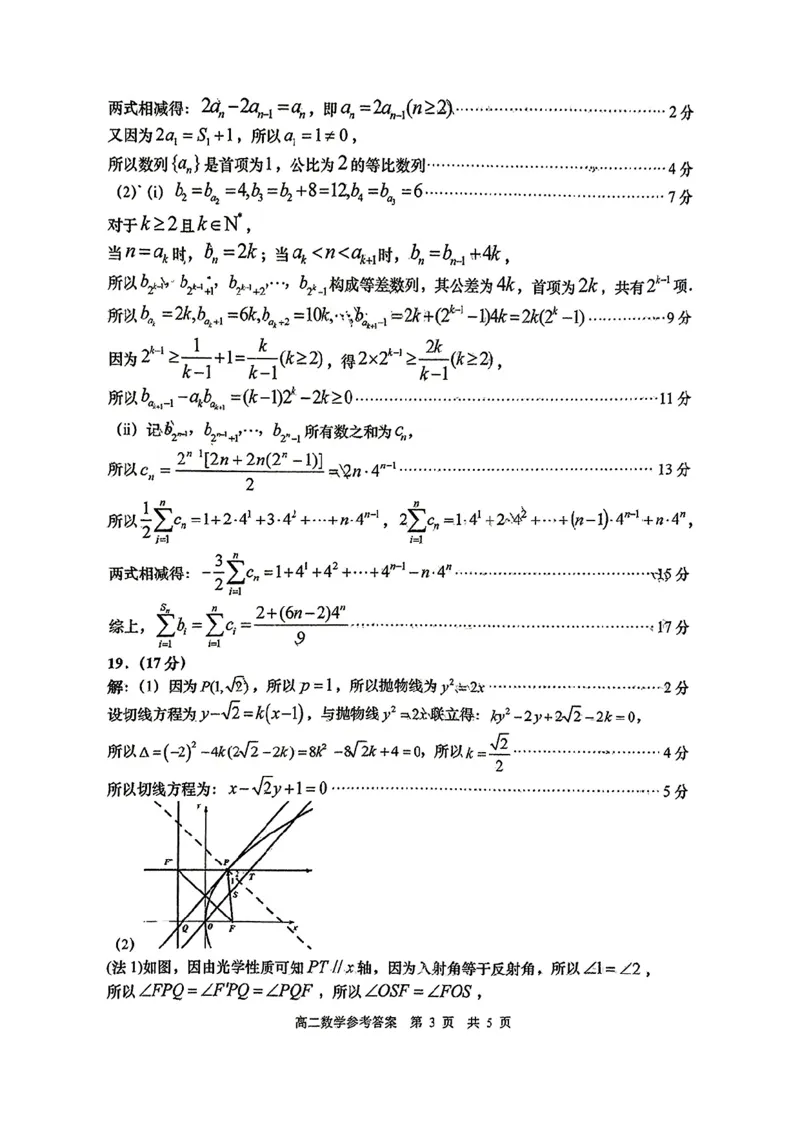 两式相减得：2aₙ－2aₙ₋₁＝aₙ，即aₙ＝2aₙ₋₁(n≥2)……2分
又因为2a₁＝S₁＋1，所以a₁＝1≠0，
所以数列{aₙ}是首项为1，公比为2的等比数列……4分
(2) (i) b₂＝b_{a₂}＝4,b₃＝b₂＋8＝12,b₄＝b_{a₃}＝6……7分
对于k≥2且k∈N*，
当n＝a_k时，bₙ＝2k；当a_k<n<a_{k+1}时，bₙ＝bₙ₋₁＋4k，
所以b_{2^{k-1}}，b_{2^{k-1}+1}，b_{2^{k-1}+2},…，b_{2^k-1}构成等差数列，其公差为4k，首项为2k，共有2^{k-1}项.
所以b_{a_k}＝2k,b_{a_k+1}＝6k,b_{a_k+2}＝10k,…,b_{a_{k+1}-1}＝2k+(2^{k-1}－1)4k＝2k(2^k－1)……9分
因为2^{k-1}≥1/(k-1)+1＝k/(k-1)(k≥2)，得2×2^{k-1}≥2k/(k-1)(k≥2)，
所以b_{a_{k+1}-1}－a_k b_{a_{k+1}}＝(k－1)2^k－2k≥0……11分
(ii) 记b_{2^{n-1}}，b_{2^{n-1}+1},…，b_{2^n-1}所有数之和为cₙ，
所以cₙ＝2^{n-1}[2n+2n(2^n－1)]/2＝2n·4^{n-1}……13分
所以1/2∑_{i=1}^{n}cₙ＝1+2·4¹+3·4²+…+n·4^{n-1}，2∑_{i=1}^{n}cₙ＝1·4¹+2·4²+…+(n－1)·4^{n-1}+n·4^n，
两式相减得：－3/2∑_{i=1}^{n}cₙ＝1+4¹+4²+…+4^{n-1}－n·4^n……15分
综上，∑_{i=1}^{Sₙ}b_i＝∑_{i=1}^{n}c_i＝(2+(6n－2)4^n)/9……17分
19.（17分）
解：(1) 因为P(1,√2)，所以p＝1，所以抛物线为y²＝2x……2分
设切线方程为y－√2＝k(x－1)，与抛物线y²＝2x联立得：ky²－2y+2√2－2k＝0，
所以Δ＝(－2)²－4k(2√2－2k)＝8k²－8√2k+4＝0，所以k＝√2/2……4分
所以切线方程为：x－√2y+1＝0……5分
Y
F' P T
1 2
S
Q O F x
(2)
(法1)如图，因由光学性质可知PT//x轴，因为入射角等于反射角，所以∠1＝∠2，
所以∠FPQ＝∠F'PQ＝∠PQF，所以∠OSF＝∠FOS，
高二数学参考答案 第 3 页 共 5 页